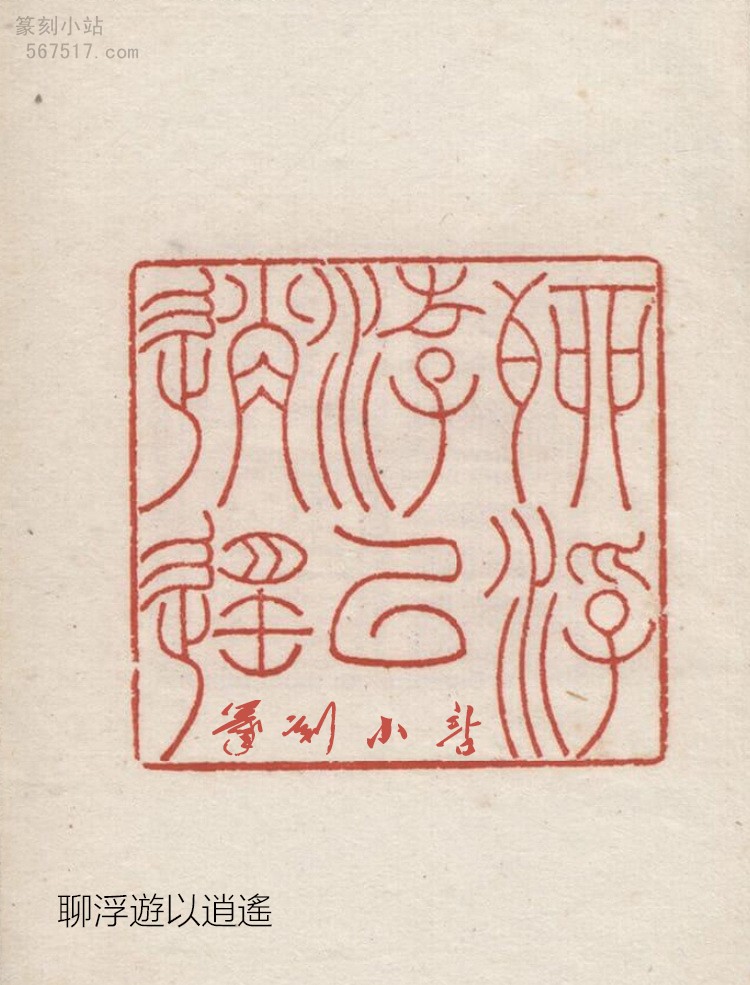 篆刻小站
567517.com
聊浮
游以
逍遙
篆刻小站
聊浮遊以逍遙